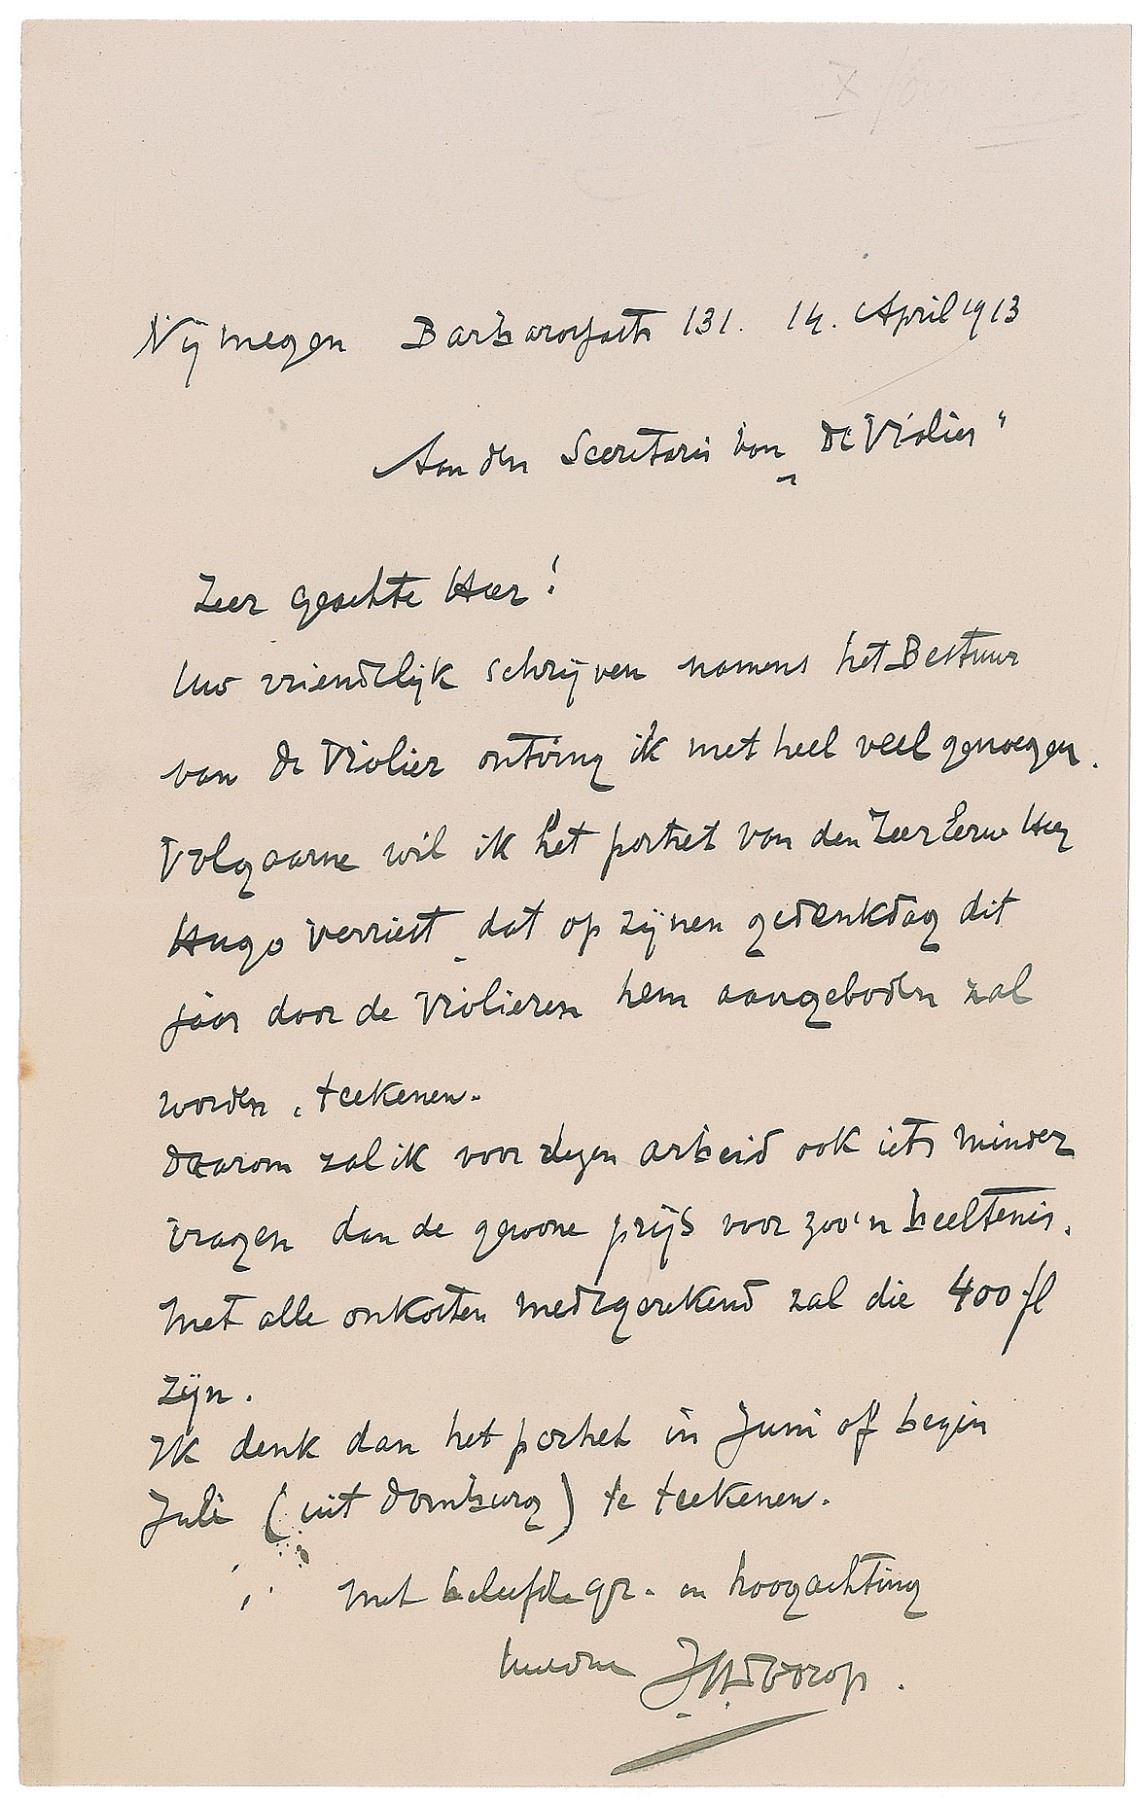 Nijmegen Barbarossastr 131. 14. April 1913
Aan den Secretaris van „De Violier"
Zeer geachte Heer!
Uw vriendelijk schrijven namens het Bestuur
van de Violier ontving ik met heel veel genoegen.
Volgaarne wil ik het portret van den Zeer Eerw Heer
Hugo Verriest, dat op zijnen gedenkdag dit
jaar door de Violieren hem aangeboden zal
worden, teekenen.
Daarom zal ik voor dezen arbeid ook iets minder
vragen dan de gewone prijs voor zoo'n beeltenis.
Met alle onkosten medegerekend zal die 400 fl
zijn.
Ik denk dan het portret in Juni of begin
Juli (uit Domburg) te teekenen.
Met beleefde gr. en hoogachting
JThToorop.